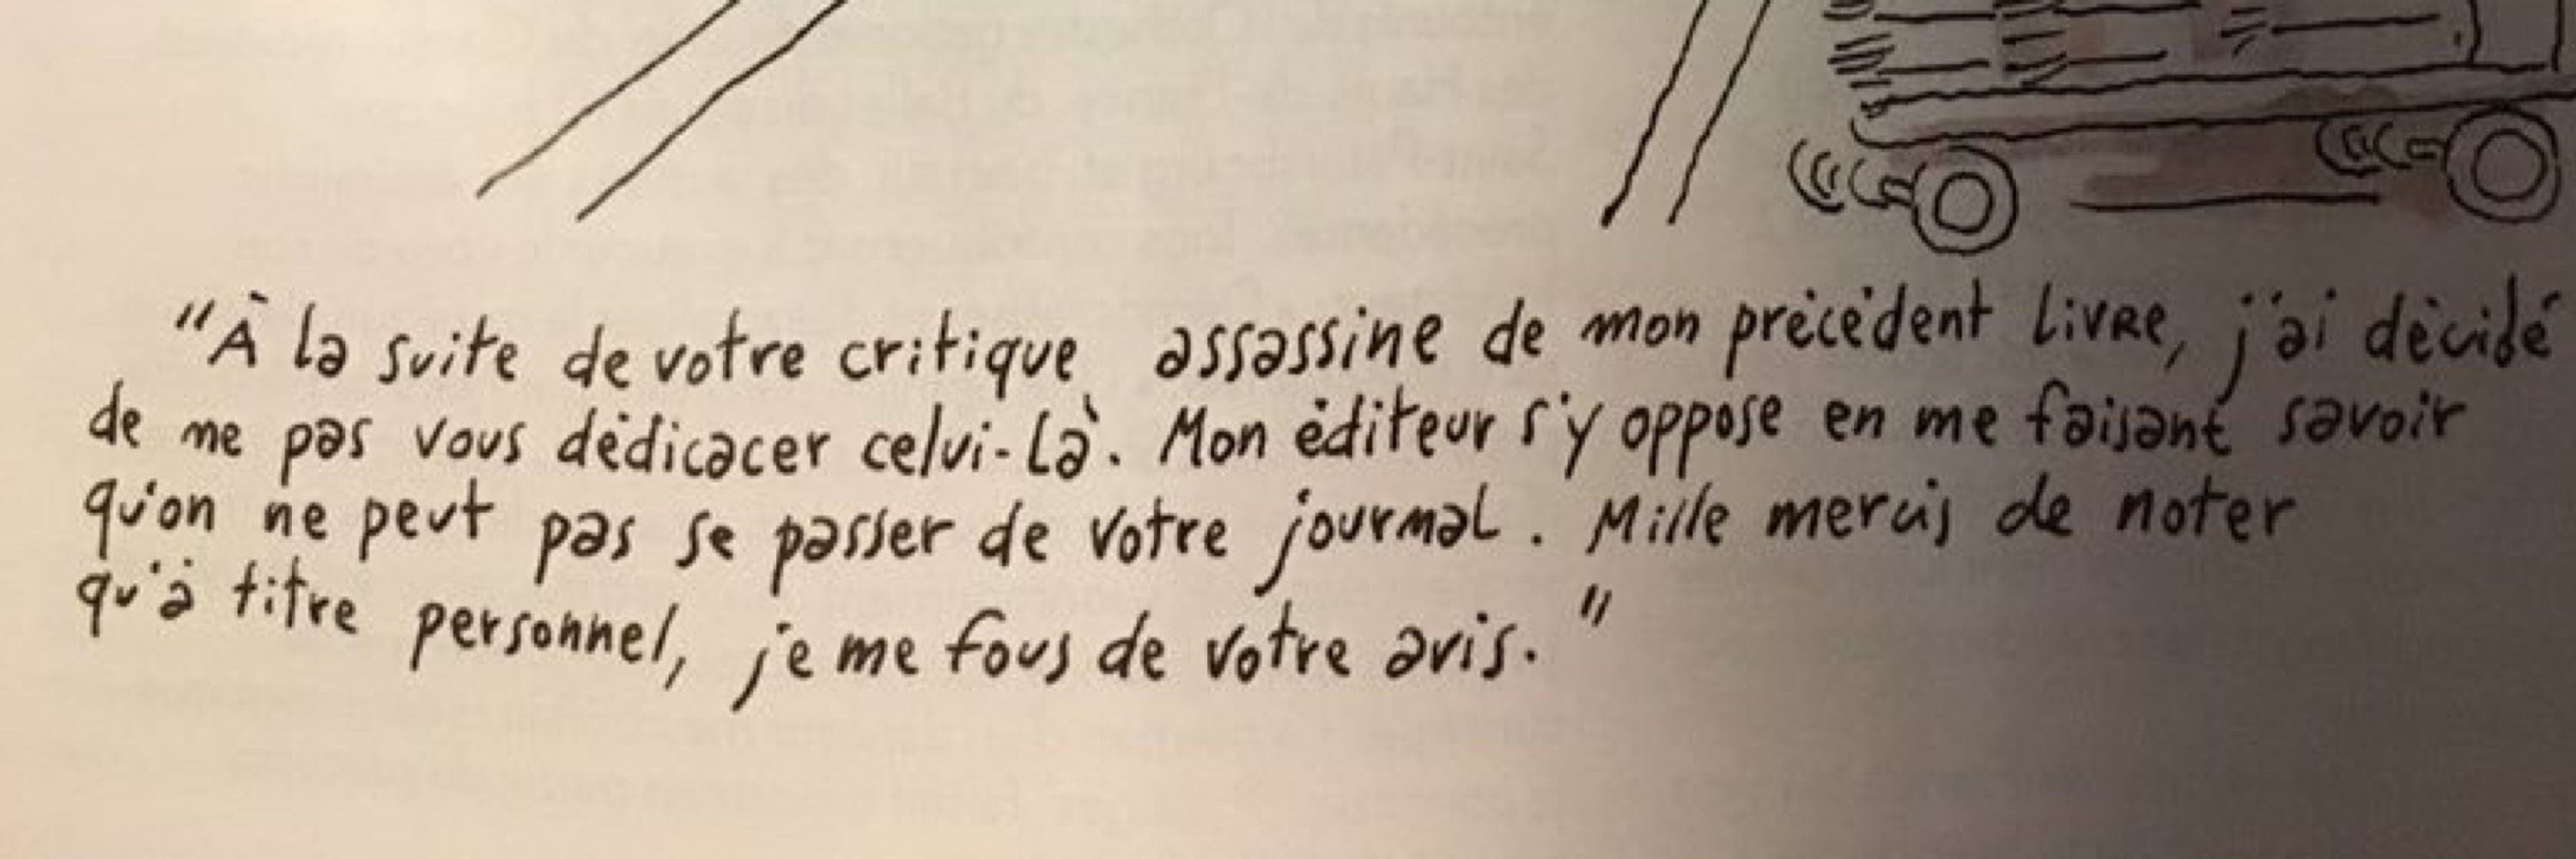 "À la suite de votre critique assassine de mon précédent livre, j'ai décidé
de ne pas vous dédicacer celui-là. Mon éditeur s'y oppose en me faisant savoir
qu'on ne peut pas se passer de votre journal. Mille mercis de noter
qu'à titre personnel, je me fous de votre avis."